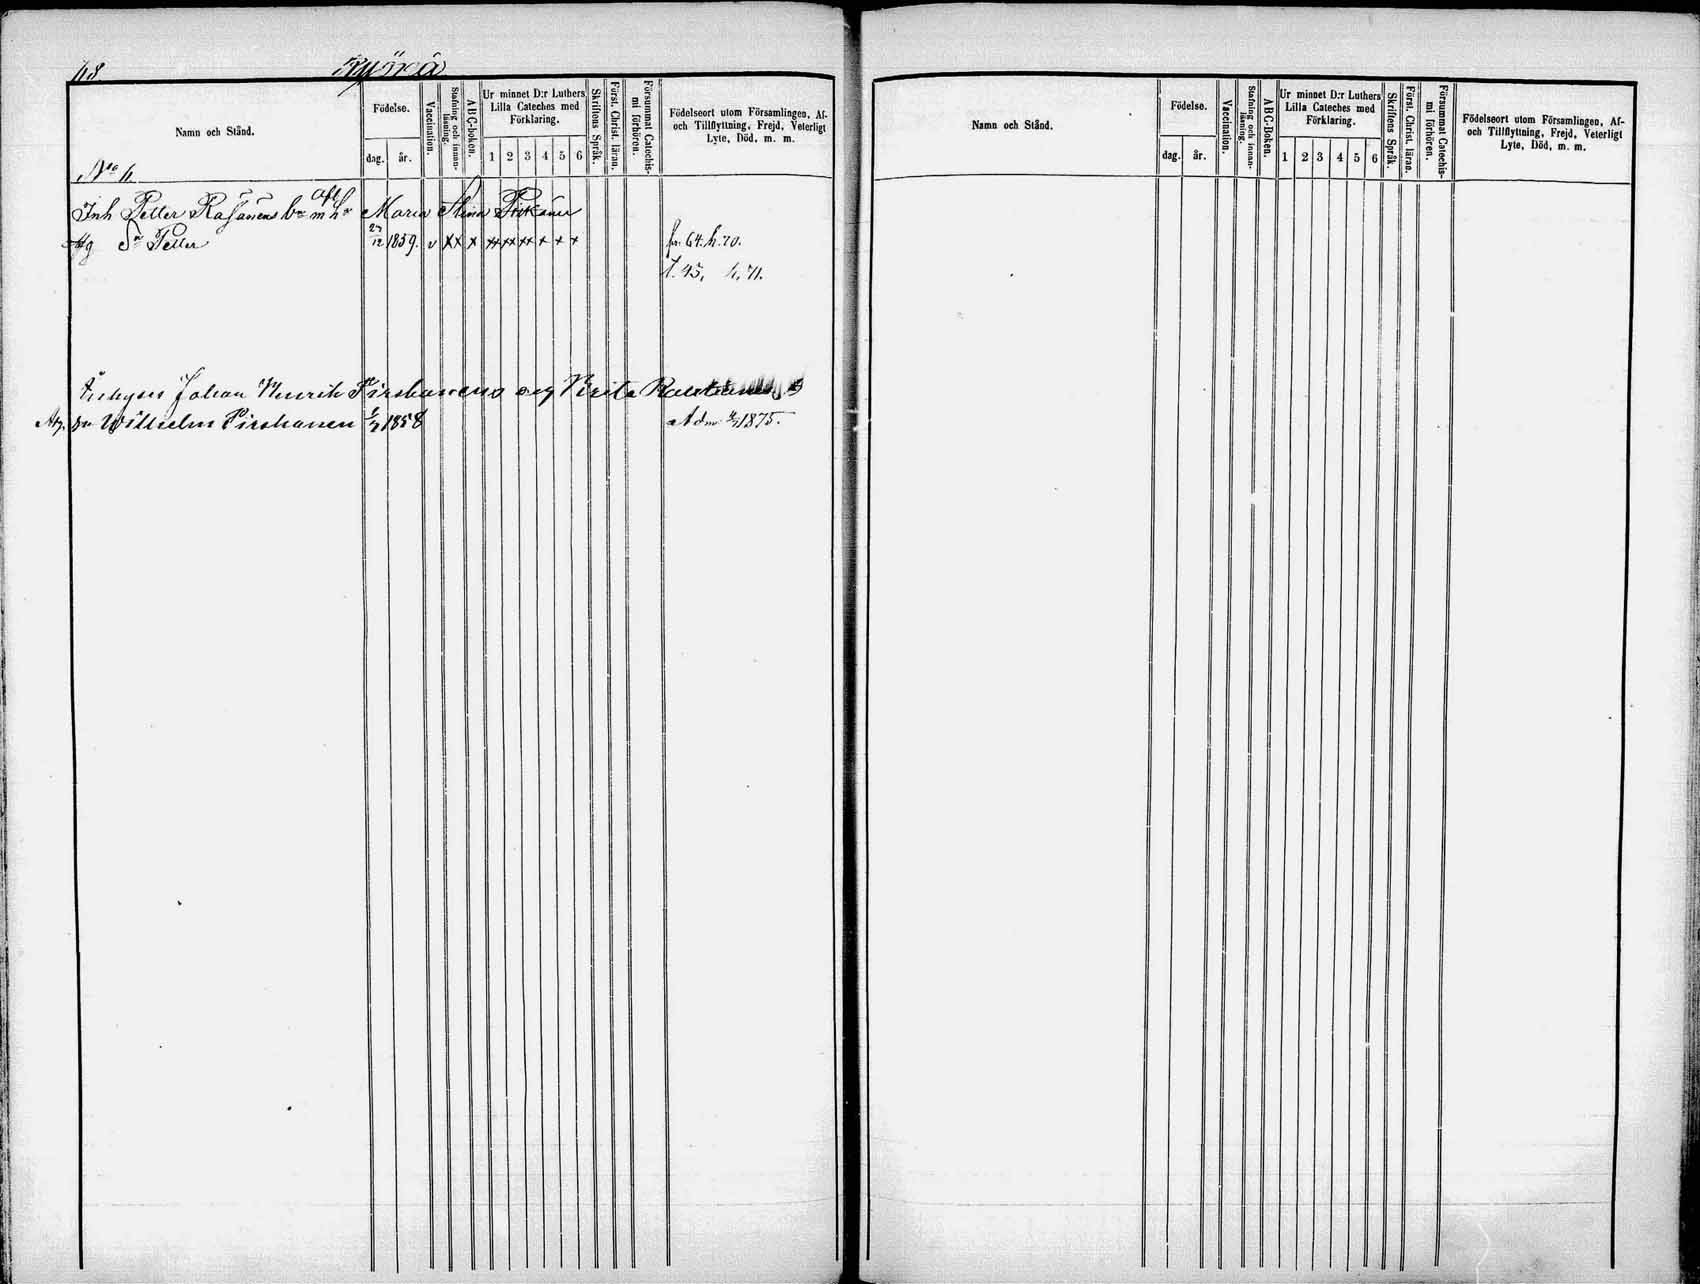 68
Namn och Stånd.
Födelse.
dag. år.
Vaccination.
Stafning och innan-
läsning.
ABC-boken.
Ur minnet D:r Luthers
Lilla Cateches med
Förklaring.
1 2 3 4 5 6
Skriftens Språk.
Först. Christ. läran.
Försummat Catechis-
mi förhören.
Födelseort utom Församlingen, Af-
och Tillflyttning, Frejd, Veterligt
Lyte, Död, m. m.
Inh Petter Räsänens b m h Maria Stina
Sn Petter 27/12 1859. v xx x xx xx xx x x x fr. 64. h. 70.
t. 45, h. 71.
Johan Henrik Pirskanens och Brita
Wilhelm Pirskanen 1858 Adm 1875.
Namn och Stånd.
Födelse.
dag. år.
Vaccination.
Stafning och innan-
läsning.
ABC-Boken.
Ur minnet D:r Luthers
Lilla Cateches med
Förklaring.
1 2 3 4 5 6
Skriftens Språk.
Först. Christ. läran.
Försummat Catechis-
mi förhören.
Födelseort utom Församlingen, Af-
och Tillflyttning, Frejd, Veterligt
Lyte, Död, m. m.